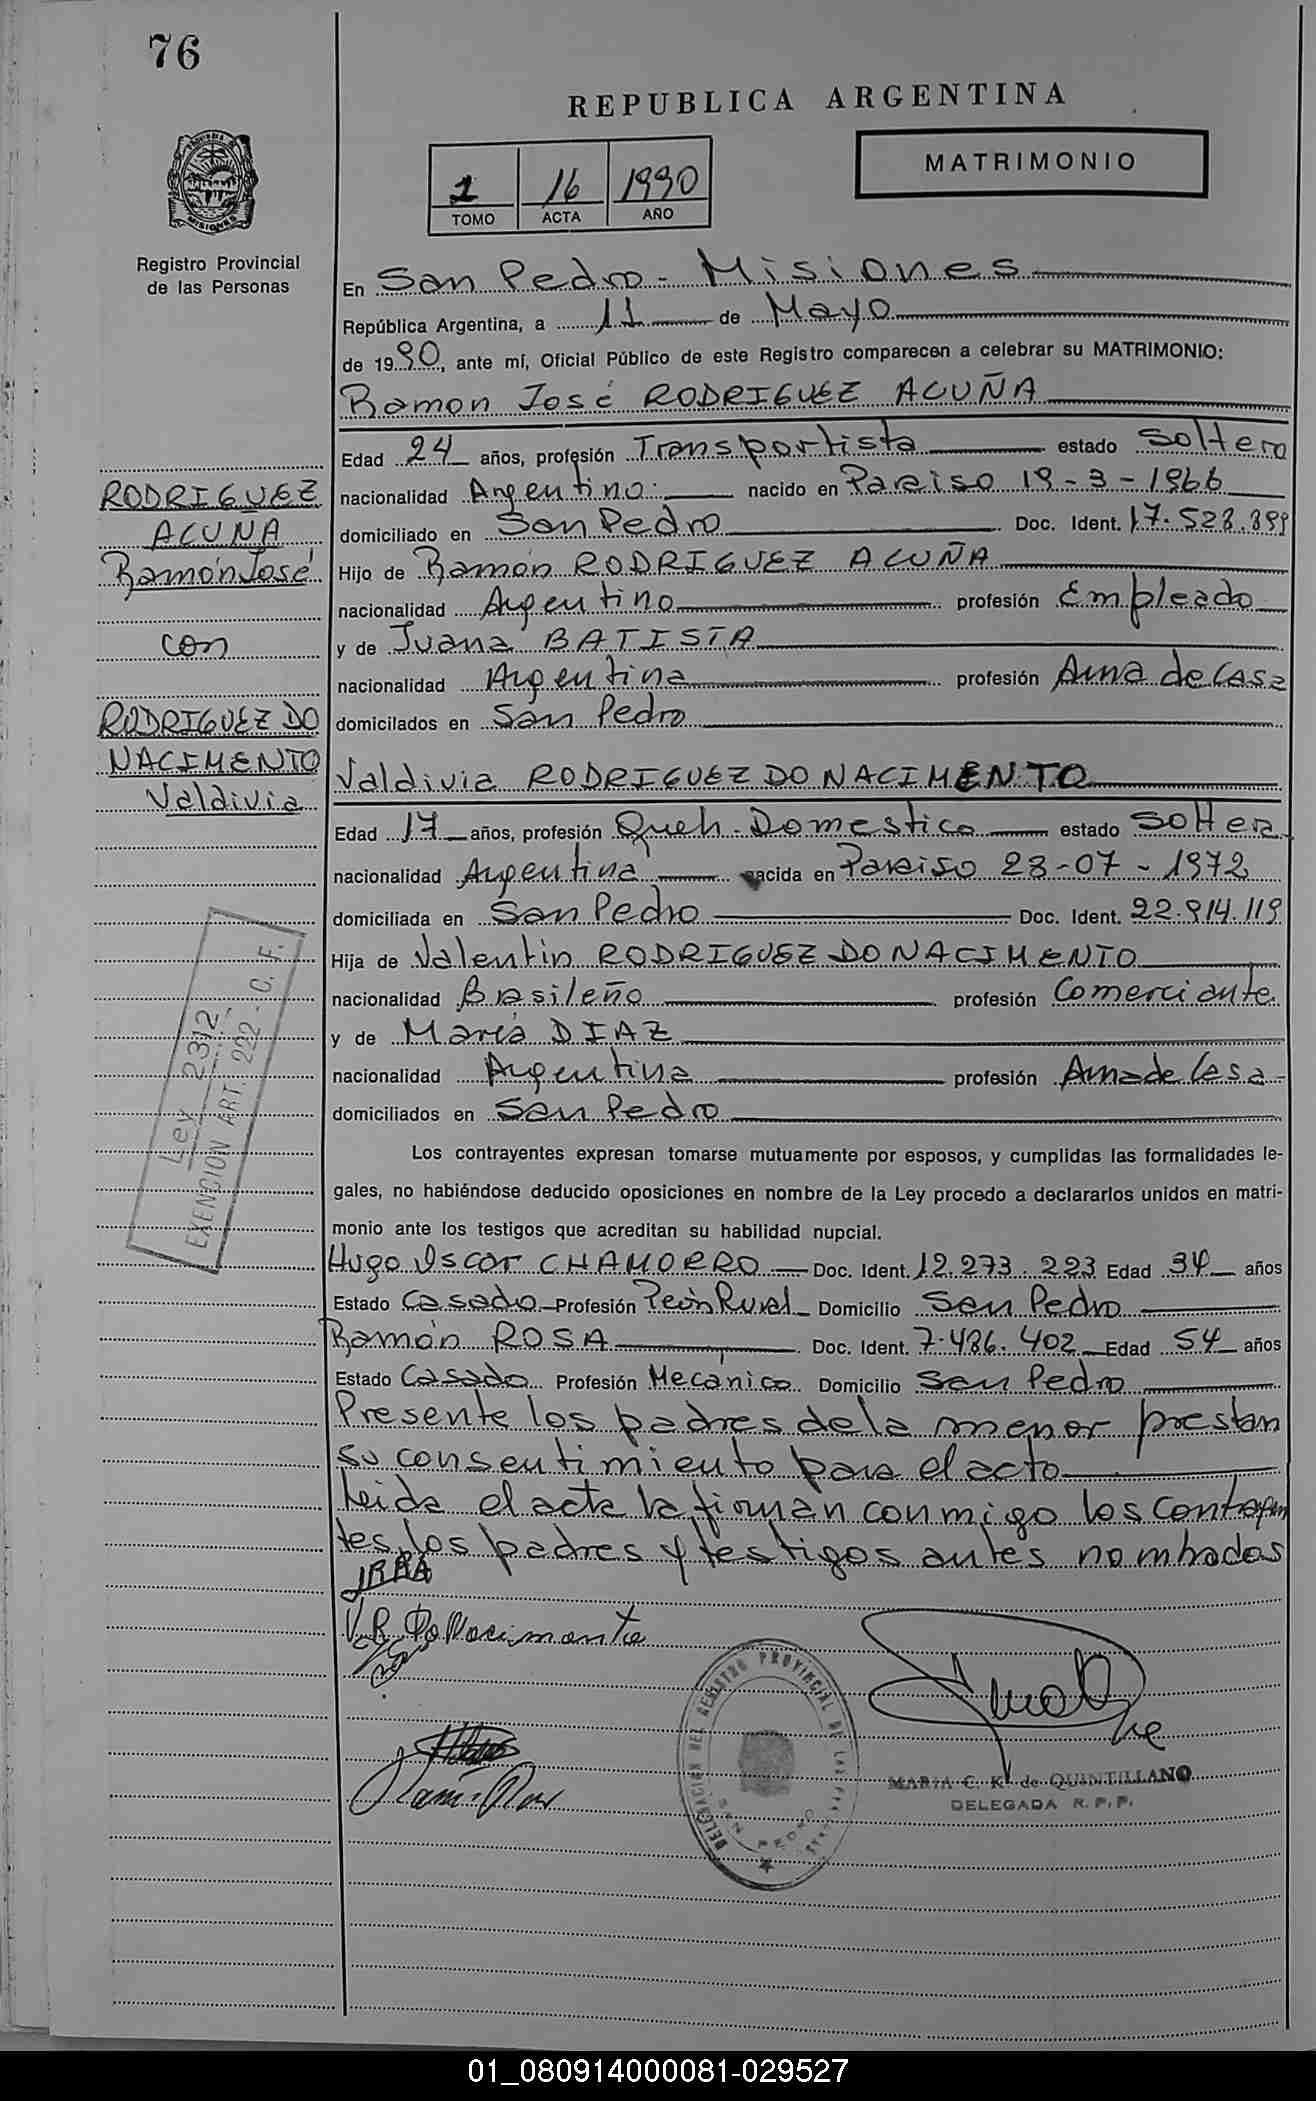 76
REPUBLICA ARGENTINA
MATRIMONIO
1 16 1990
TOMO ACTA AÑO
Registro Provincial
de las Personas
En San Pedro - Misiones
República Argentina, a 11 de Mayo
de 1990, ante mí, Oficial Público de este Registro comparecen a celebrar su MATRIMONIO:
Ramon José RODRIGUEZ ACUÑA
Edad 24 años, profesión Transportista estado Soltero
nacionalidad Argentino nacido en Paraiso 19-3-1966
domiciliado en San Pedro Doc. Ident. 17.528.899
Hijo de Ramón RODRIGUEZ ACUÑA
nacionalidad Argentino profesión Empleado
y de Juana BATISTA
nacionalidad Argentina profesión Ama de Casa
domicilados en San Pedro
RODRIGUEZ
ACUÑA
Ramón José
con
RODRIGUEZ DO
NACIMENTO
Valdivia
Valdivia RODRIGUEZ DO NACIMENTO
Edad 17 años, profesión Queh. Domestico estado Soltera
nacionalidad Argentina nacida en Paraiso 23-07-1972
domiciliada en San Pedro Doc. Ident. 22.914.119
Hija de Valentin RODRIGUEZ DO NACIMENTO
nacionalidad Brasileño profesión Comerciante
y de María DIAZ
nacionalidad Argentina profesión Ama de Casa
domiciliados en San Pedro
Ley 2312
EXENCION ART. 222 - C. F.
Los contrayentes expresan tomarse mutuamente por esposos, y cumplidas las formalidades le-
gales, no habiéndose deducido oposiciones en nombre de la Ley procedo a declararlos unidos en matri-
monio ante los testigos que acreditan su habilidad nupcial.
Hugo Oscar CHAMORRO Doc. Ident. 12.273.223 Edad 34 años
Estado Casado Profesión Peón Rural Domicilio San Pedro
Ramón ROSA Doc. Ident. 7.486.402 Edad 54 años
Estado Casado Profesión Mecánico Domicilio San Pedro
Presente los padres de la menor prestan
su consentimiento para el acto
Leida el acta la firman conmigo los contrayen
tes, los padres y testigos antes nombrados
JRRA
V.R. Do Nacimento
DELEGACION DEL REGISTRO PROVINCIAL DE LAS PERSONAS
SAN PEDRO
MARIA C. K. de QUINTILLANO
DELEGADA R.P.P.
01_080914000081-029527